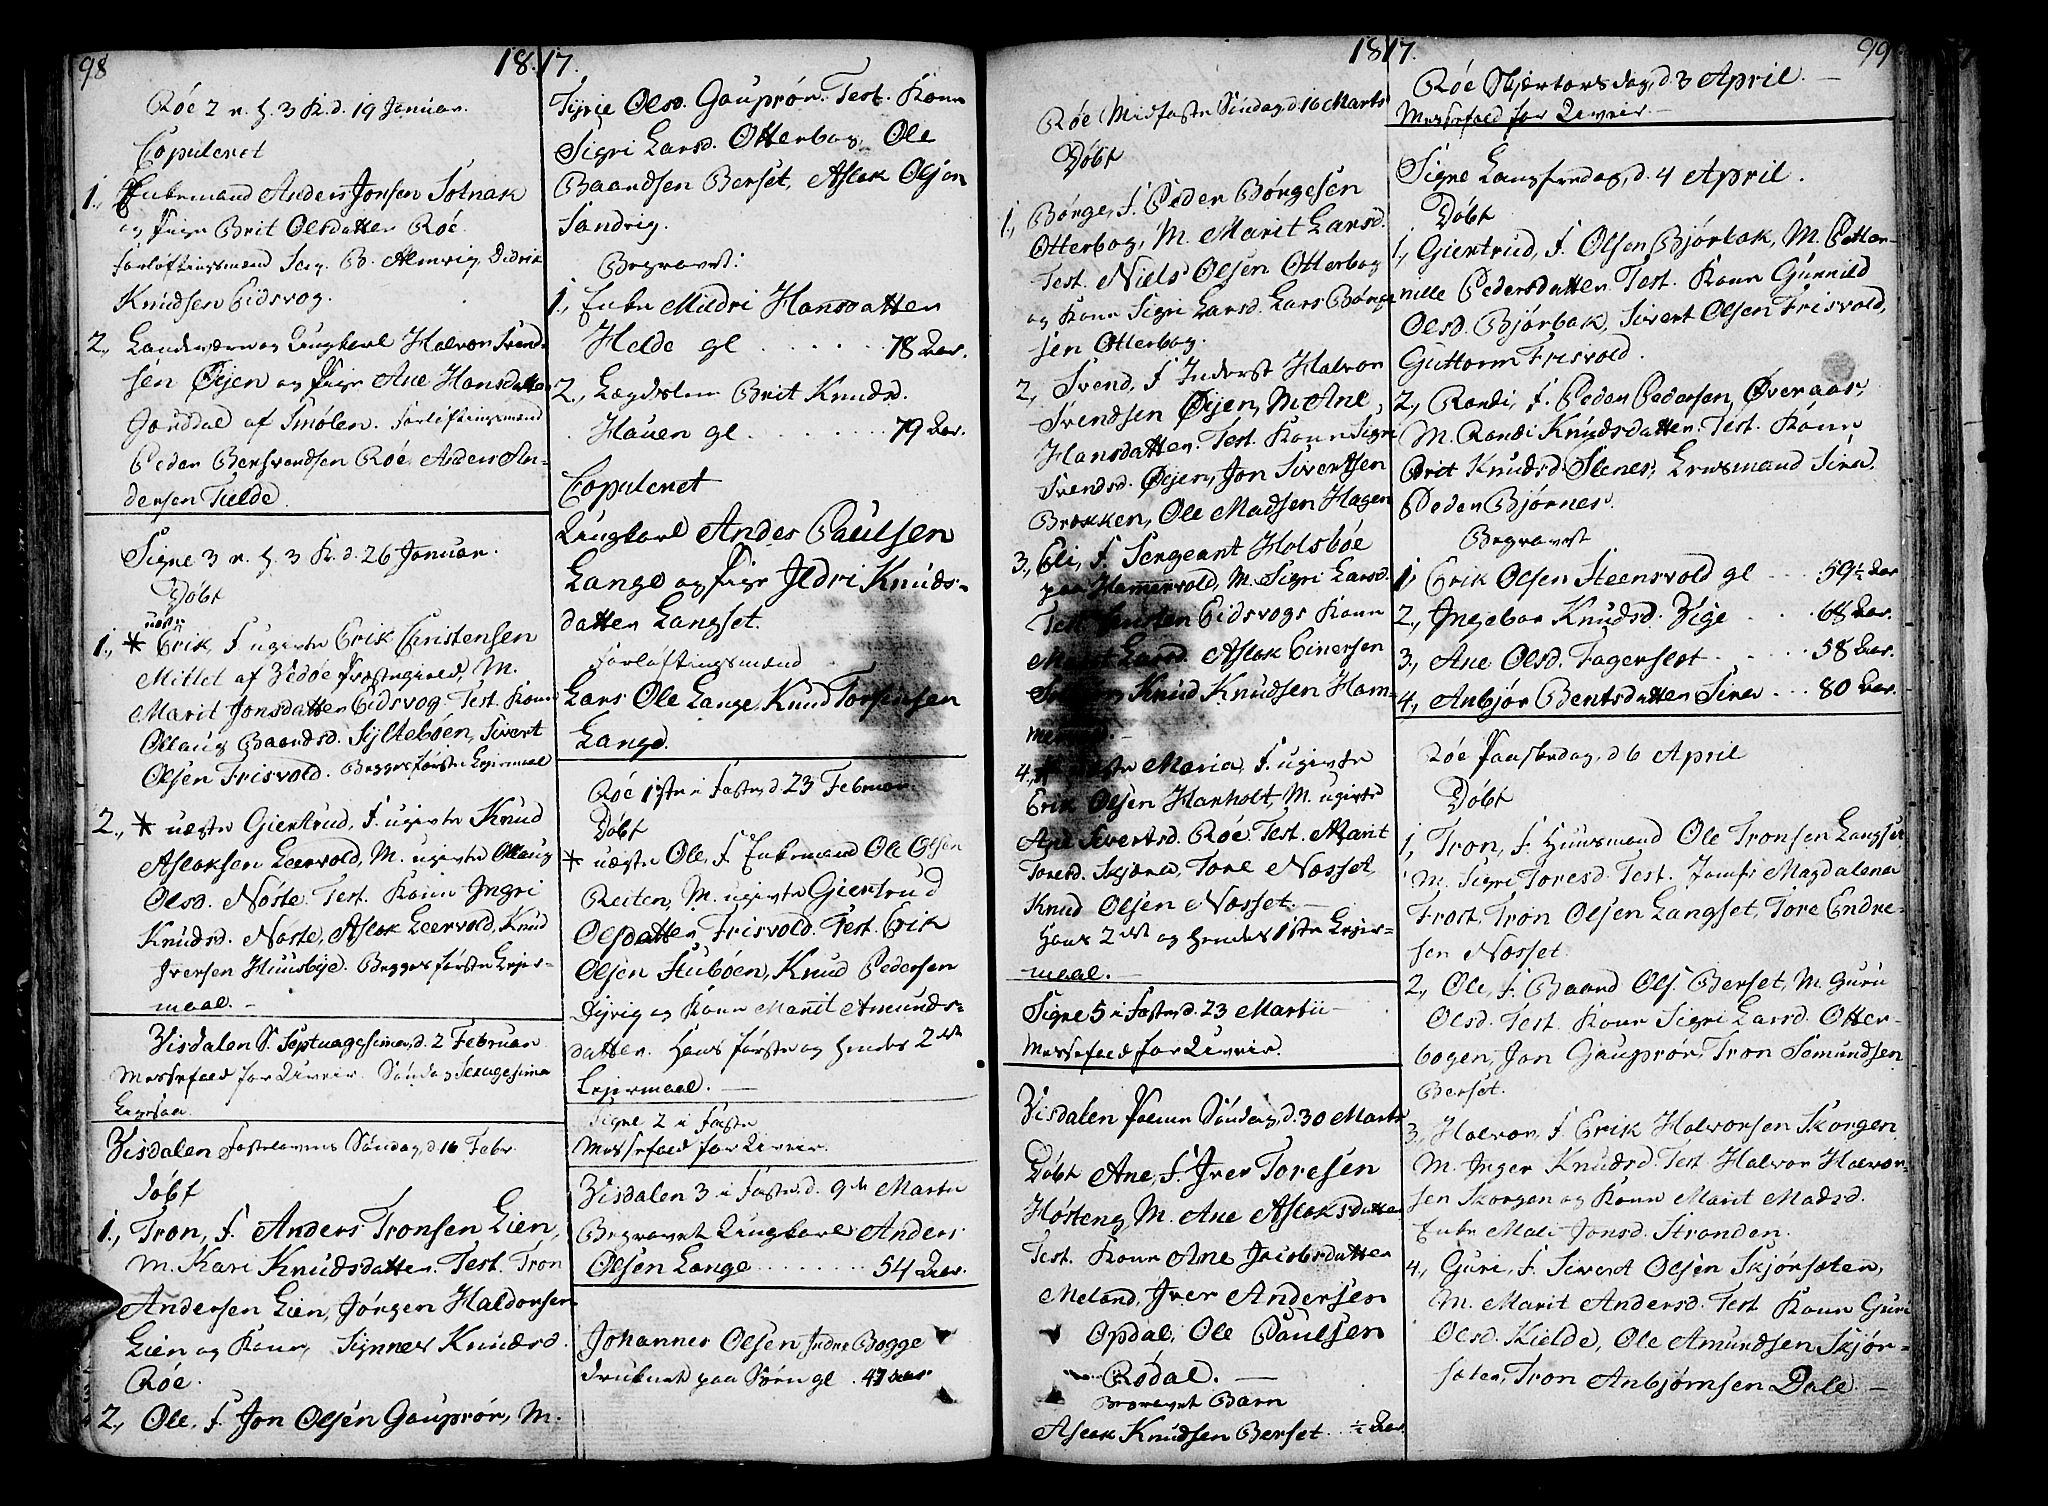 98
1817.
Røe 2 e. h. 3 K. d. 19 Januar.
Copuleret
1., Enkemand Anders Jonsen Solnak
og Pige Brit Olsdatter Røe.
Forløftingsmænd Serg. B. Almvig, Didrik
Knudsen Eidsvog.
2., Landeværns Ungkarl Halvor Svend-
sen Øijen og Pige Ane Hansdatter
Jonsdal af Smølen. Forløftingsmænd
Peder Bersvendsen Røe, Anders An-
dersen Tielde.
Signe 3 e. h. 3 K. d. 26 Januar.
Døbt
uægte
1., * Erik, F. ugivte Erik Christensen
Mittet af Vedøe Præstegield, M.
Marit Jonsdatter Eidsvog. Test. Kone
Ollaug Baardsd. Syltebøen, Sivert
Olsen Frisvold. Begges første Lejermaal
2., * uægte Giertrud, F. ugivte Knud
Aslaksen Leervold, M. ugivte Ollaug
Olsd. Nøste. Test. Kone Ingri
Knudsd. Nøste, Aslak Leervold, Knud
Iversen Huusbye. Begges første Lejer-
maal. -
Visdalen S. Septuagesima, d. 2 Februar
Messefald for Uveir. Søndag Sexagesima
Ligesaa
Visdalen Fastelavens Søndag, d 16 Febr.
Døbt
1., Tron, F. Anders Tronsen Lien,
M. Kari Knudsdatter. Test. Tron
Andersen Lien, Jørgen Haldorsen
Lien og Kone, Synnev Knudsd.
Røe.
2., Ole, F. Jon Olsen Gauprør, M.
Sigrie Olsd. Gauprør. Test. Kone
Sigri Larsd. Otterbog, Ole
Baardsen Berset, Aslak Olsen
Sandvig.
Begravet:
1., Enke Mildri Hansdatter
Helde gl . . . . . 78 Aar.
2., Lægdslem Brit Knudsd.
Hauen gl . . . . . 79 Aar.
Copuleret
Ungkarl Andes Paulsen
Lange og Pige Ildri Knuds-
datter Langset.
Forløftingsmænd
Lars Ole Lange, Knud Torstensen
Lange.
Røe 1ste i Faste, d 23 Februar.
Døbt
* uægte Ole, F. Enkemand Ole Olsen
Reiten, M. ugivte Giertrud
Olsdatter Frisvold. Test. Erik
Olsen Stubøen, Knud Pedersen
Dyrvig og Kone Marit Amunds-
datter. Hans første og hendes 2det
Lejermaal. -
Signe 2 i Faste
Messefald for Uveir.
Visdalen 3 i Faste, d. 9de Martii
Begravet Ungkarl Anders
Olsen Lange . . . . . 54 Aar.
Johannes Olsen Indre Bogge
druknet paa Søen gl. 47 aar
1817.
99
Røe Midfaste Søndag, d. 16 Marts
Døbt
1., Børge, F. Peder Børgesen
Otterbog, M. Marit Larsd.
Test. Niels Olsen Otterbog
og Kone Sigri Larsd. Lars Børge
sen Otterbog.
2., Svend, F. Inderst Halvor
Svendsen Øijen, M. Ane
Hansdatter. Test. Kone Sigri
Svendsd. Øijen, Jon Sivertsen
Brekken, Ole Madsen Hagen
3., Eli, F. Sergeant Holsbøe
paa Hammervold, M. Sigri Larsd.
Test. Eidsvogs Kone
Marit Larsd. Aslak Einersen
Knud Knudsen Ham-
4., * uægte Maria, F. ugivte
Erik Olsen Hanholt, M. ugivte
Ane Sivertsd. Røe. Test. Marit
Toresd. Skjøren, Tore Næsset,
Knud Olsen Næsset. -
Hans 2det og hendes 1ste Lejer-
maal. -
Signe 5 i Faste, d. 23 Martii -
Messefald for Uveir.
Visdalen Palme Søndag, d. 30 Marts
Døbt Ane, F. Iver Toresen
Høsteng, M. Ane Aslaksdatter
Test. Kone Ane Jacobsdatter
Meland, Iver Andersen
Opdal, Ole Paulsen
Rødal. -
Begravet Barn
Aslak Knudsen Berset . . ½ Aar.
Røe Skjertorsdag, d. 3 April. -
Messefald for Uveir. -
Signe Langfredag, d. 4 April.
Døbt
1., Giertrud, F. Olsen Bjørbak, M. Petter-
nille Pedersdatter. Test. Kone Gunnild
Olsd. Bjørbak, Sivert Olsen Frisvold,
Guttorm Frisvold.
2., Randi, F. Peder Pedersen Øveraas,
M. Randi Knudsdatter. Test. Kone
Brit Knudsd. Stenes, Leusmand Sira,
Peder Bjørnes.
Begravet
1, Erik Olsen Steensvold gl . . . 59½ Aar
2., Ingebor Knudsd. Vige . . 68 Aar.
3., Ane Olsd. Fagerslet . . . . . 58 Aar.
4., Anbjør Bentsdatter Sira . . . 80 Aar.
Røe Paaskedag, d 6 April
Døbt
1, Tron, F. Huusmand Ole Tronsen Langset
M. Sigri Toresd. Test. Jomfr Magdalena
Frost, Tron Olsen Langset, Tore Endre-
sen Næsset.
2., Ole, F. Baard Ols. Berset, M. Guru
Olsd. Test. Kone Sigri Larsd. Otter-
bogen, Jon Gauprør, Tron Semundsen
Berset.
3., Halvor, F. Erik Halvorsen Skorgen,
M. Inger Knudsd. Test. Halvor Halvor-
sen Skorgen og Kone Marit Madsd.
Enke Mali Jonsd. Stranden.
4., Guri, F. Sivert Olsen Skjørsæten,
M. Marit Andersd. Test. Kone Guri
Olsd. Kielde, Ole Amundsen Skjør-
sæten, Tron Anbjørnsen Dale. -